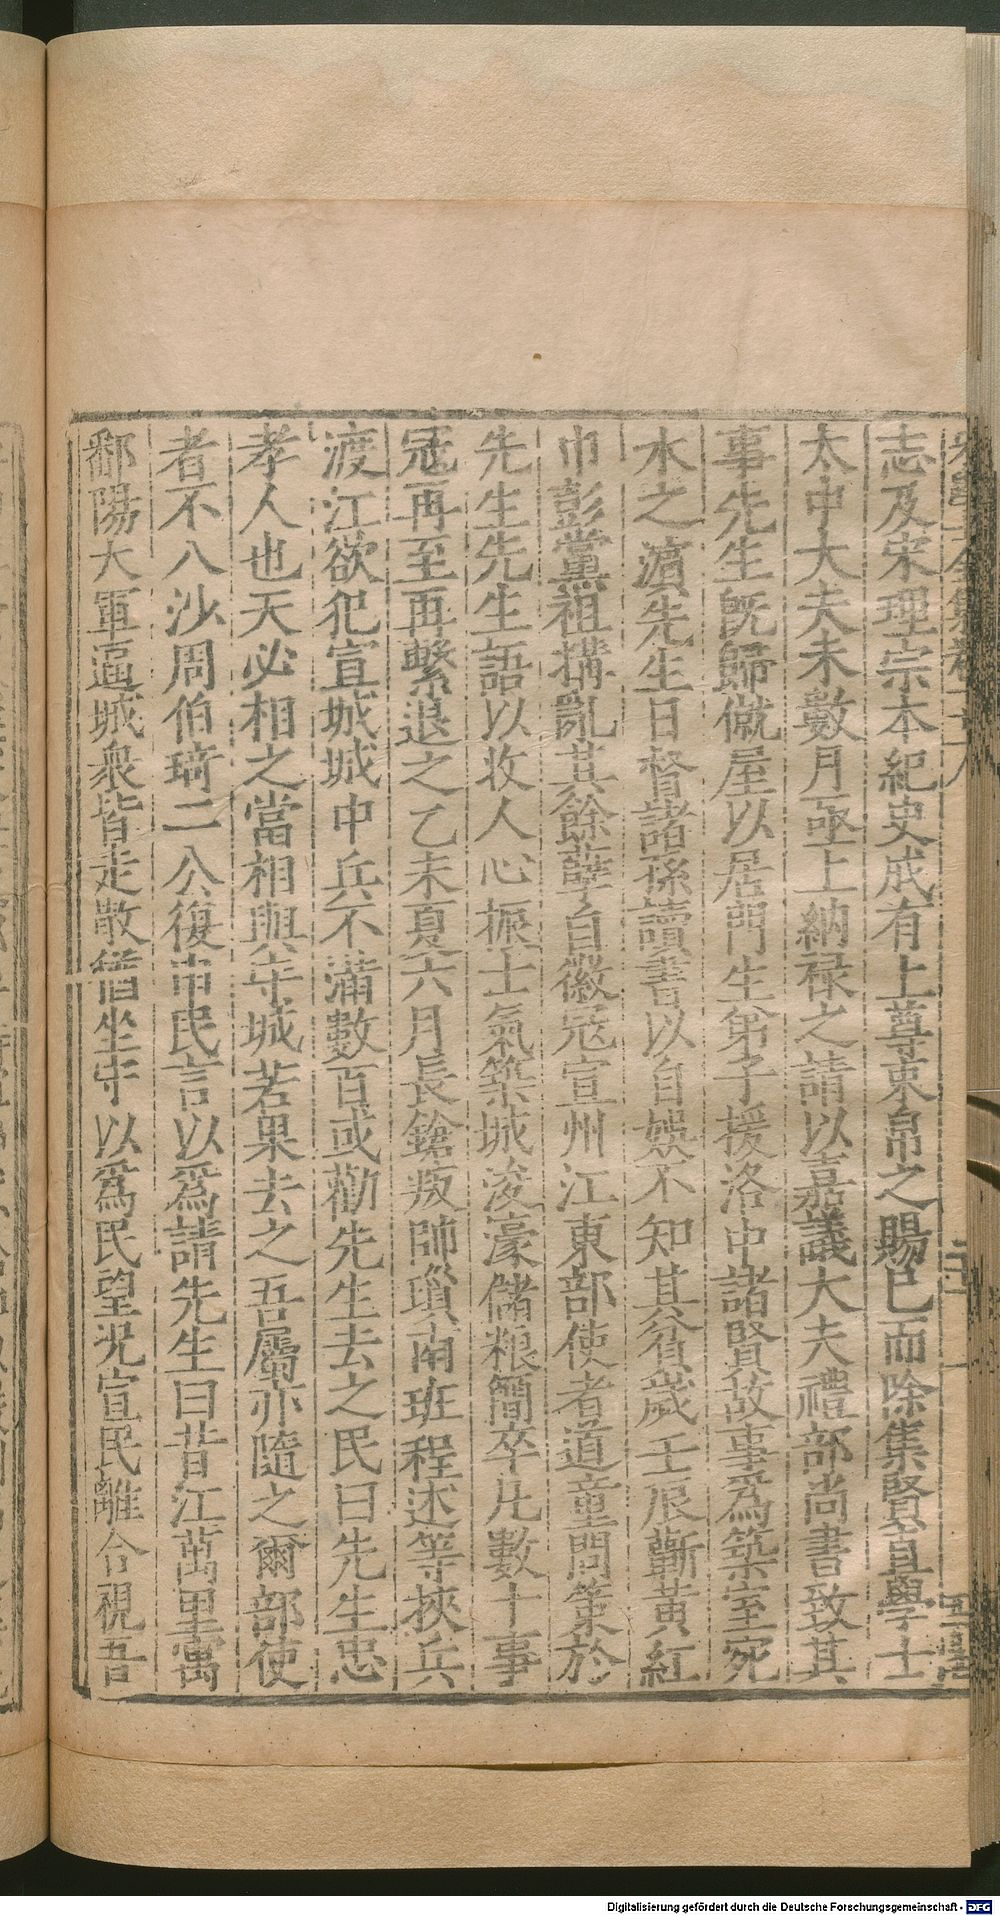 志及宋理宗本紀史成有上尊束帛之賜已而除集賢直學士
太中大夫未數月亟上納祿之請以嘉議大夫禮部尚書致其
事先生旣歸僦屋以居門生弟子援洛中諸賢故事爲築室宛
水之濵先生日督諸孫讀書以自娛不知其貧歲壬辰蘄黃紅
巾彭黨祖搆亂其餘孽自徽宼宣州江東部使者道童問策於
先生先生語以收人心振士氣築城浚濠儲粮簡卒凡數十事
宼再至再擊退之乙未夏六月長鎗叛帥瑣南班程述等挾兵
渡江欲犯宣城城中兵不滿數百或勸先生去之民曰先生忠
孝人也天必相之當相與守城若果去之吾屬亦隨之爾部使
者不八沙周伯琦二公復申民言以爲請先生曰昔江萬里寓
鄱陽大軍逼城衆皆走散猶坐守以爲民望况宣民離合視吾
Digitalisierung gefördert durch die Deutsche Forschungsgemeinschaft - DFG